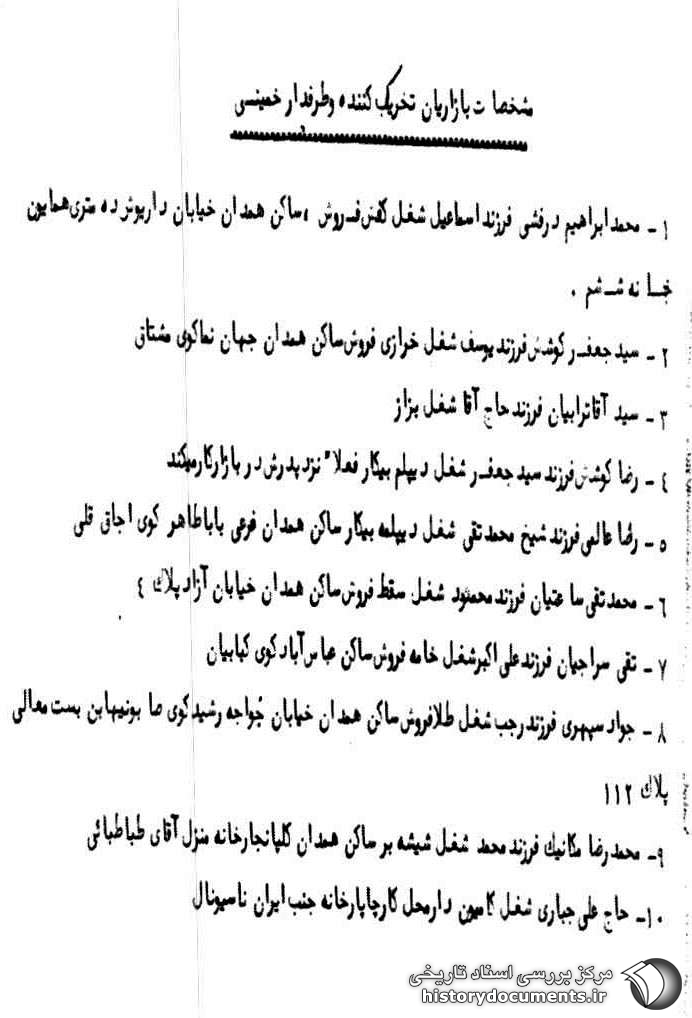 مشخصات بازاریان تحریک کننده وطرفدار خمینی
۱- محمدابراهیم درفشی فرزنداسماعیل شغل کفش فروش ،ساکن همدان خیابان داریوش ده متری همایون
خانه ششم .
۲- سیدجعفر کوشش فرزندیوسف شغل خرازی فروش ساکن همدان جهان نماکوی مشتاق
۳- سید آقاترابیان فرزندحاج آقا شغل بزاز
٤- رضا کوشش فرزند سیدجعفر شغل دیپلم بیکار فعلا" نزدپدرش در بازارکارمیکند
۵- رضا عالمی فرزند شیخ محمدتقی شغل دیپلمه بیکار ساکن همدان فرعی باباطاهر کوی اجاق قلی
۶- محمدتقی ساعتیان فرزندمحمود شغل سقط فروش ساکن همدان خیابان آزاد پلاك ٤
۷- تقی سراجیان فرزندعلی اکبرشغل خامه فروش ساکن عباس آبادکوی کبابیان
۸- جوادسپهری فرزندرجب شغل طلافروش ساکن همدان خیابان خواجه رشیدکوی صابونیهابن بست معالی
پلاك ۱۱۲
۹- محمدرضا مکانیك فرزندمحمد شغل شیشه بر ساکن همدان کلپانجارخانه منزل آقای طباطبائی
۱۰- حاج علی جباری شغل کامیون دارمحل کارچاپارخانه جنب ایران ناسیونال
مرکز بررسی اسناد تاریخی
historydocuments.ir